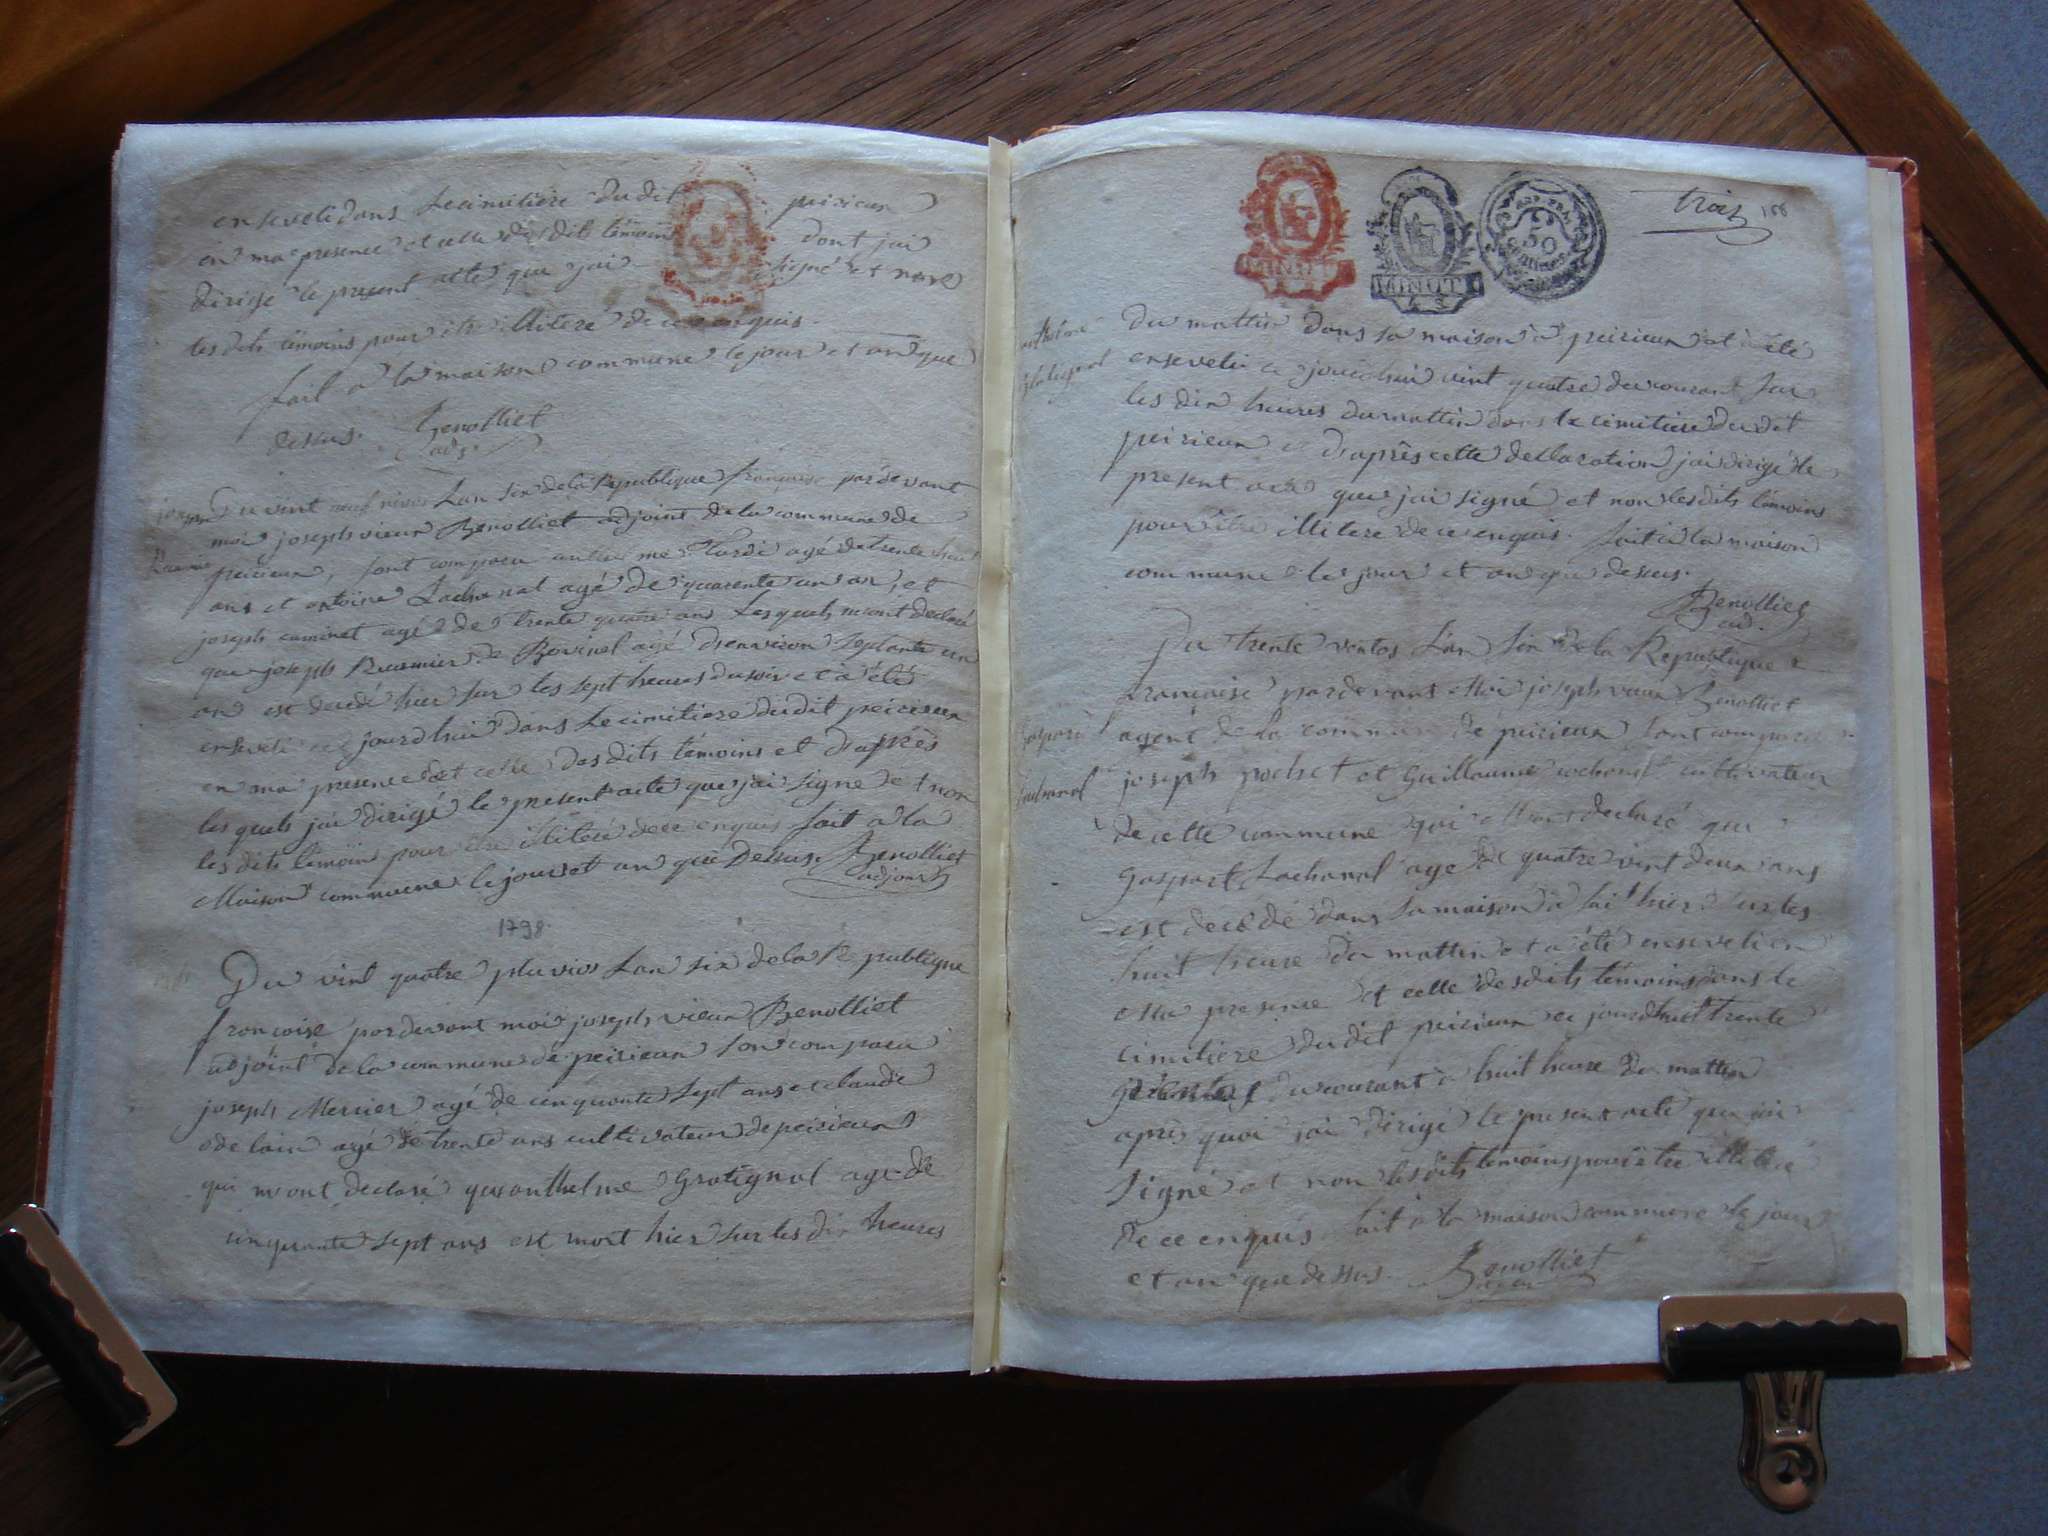 ensevelidans Lecimitiere dudit peirieux
en ma presence et celle desdits témoins dont jai
dirigé le present acte que jai signé et non
lesdits témoins pour être illiteré de ce enquis.
fait a la maison commune le jour et an que
dessus. Benolliet
adj.
joseph
Du vint neuf nivos Lan six dela Republique française pardevant
moi joseph vieux Benolliet adjoint dela commune de
peirieux, sont comparu tardi agé de trente huit
ans et antoine Lachanal agé de quarente un an, et
joseph caminet agé de trente quatre ans Lesquels mont declaré
que joseph de Rovinel agé denviron septante un
an est decedé hier sur les sept heures dusoir et a été
enseveli ce jourdhui dans Lecimitiere dudit peirieux
en ma presence et celle desdits témoins et daprès
lesquels jai dirigé le present acte que jai signé et non
lesdits témoins pour être illiteré de ce enquis fait a la
Maison commune le jour et an que dessus. Benolliet
adjoint
1798
Du vint quatre pluvios Lan six dela Republique
françoise pardevant moi joseph vieux Benolliet
adjoint de la commune de peirieux sont comparu
joseph Mercier agé de cinquante sept ans et claude
delain agé de trente ans cultivateur de peirieux
qui mont declaré que anthelme Gratignol age de
cinquante sept ans est mort hier sur les dix heures
MINUT
MINUT
50
centimes
trois 188
anthelme
du mattin dans sa maison a peirieux et a été
enseveli ce jourdhui vint quatre du courant sur
les dix heures dumattin dans le cimitiere dudit
peirieux et d'après cette declaration jai dirigé le
present acte que jai signé et non lesdits témoins
pour être illiteré de ce enquis. fait a la maison
commune le jour et an que dessus.
Benolliet
ad.
Du trente ventos Lan six de la Republique
francaise pardevant Moi joseph vieux Benolliet
gaspard
agent de la commune de peirieux sont comparu
Lachanal
joseph pochet et Guillaume cochonat cultivateur
de cette commune qui Mont declaré que
Gaspart Lachanal age de quatre vint deux ans
est decédé dans sa maison a hier sur les
huit heure du mattin et a été enseveli en
Ma presence et celle desdits témoins dans le
cimitiere dudit peirieux ce jourdhui trente
du courant a huit heure du mattin
après quoi jai dirigé le present acte que jai
signé et non lesdits temoins pour être illiteré
de ce enquis fait a la maison commune le jour
et an que dessus. Benolliet
agent